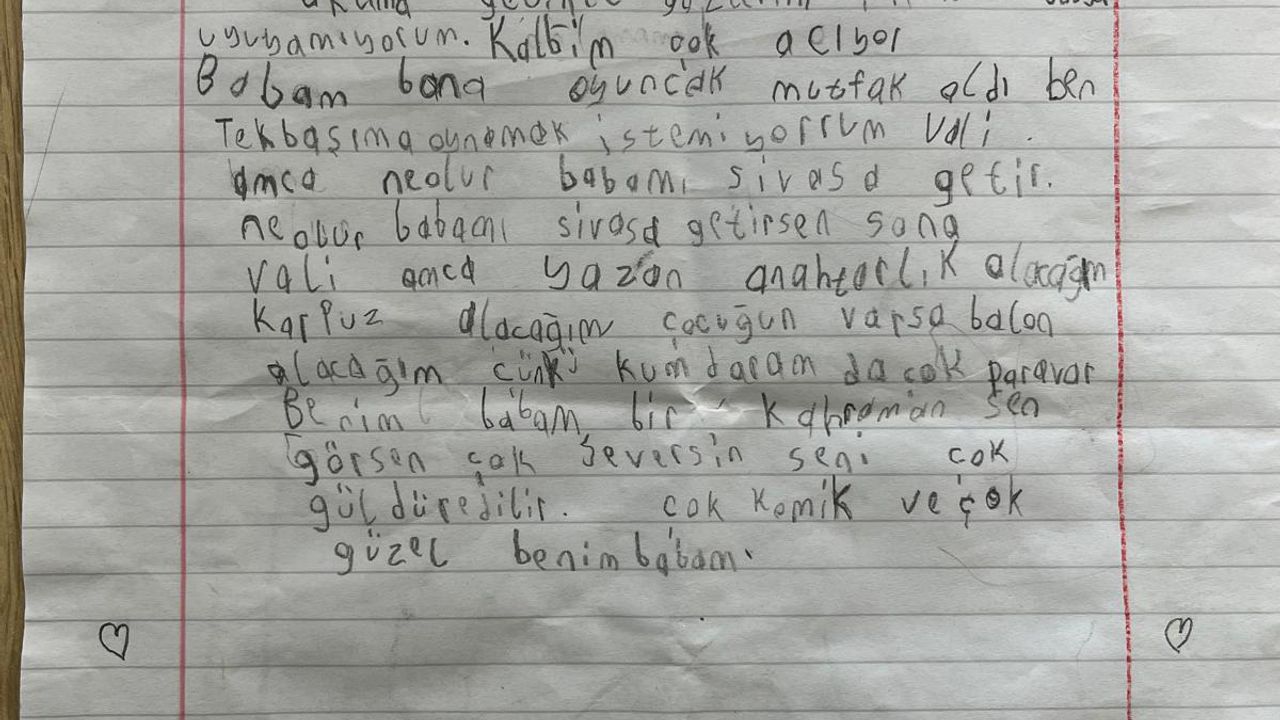 uyuyamıyorum. Kalbim çok acıyor
Babam bana oyuncak mutfak aldı ben
Tek başıma oynamak istemiyorrum Vali.
amca neolur babamı sivasa getir.
neolur babamı sivasa getirsen sana
vali amca yazan anahtarlık alacağım
Karpuz alacağım çocuğun varsa balon
alacağım çünkü kumdaram da çok paravar
Benim babam bir kahraman sen
görsen çok seversin seni çok
güldürebilir. çok komik ve çok
güzel benim babam.